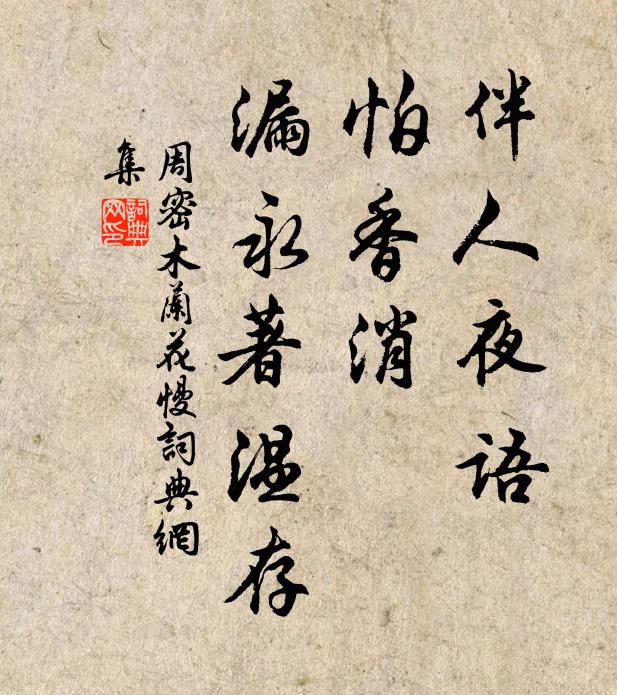 伴人夜语
怕香消
漏永著温存
周密木蘭花慢詞典網
集
詞典
网印